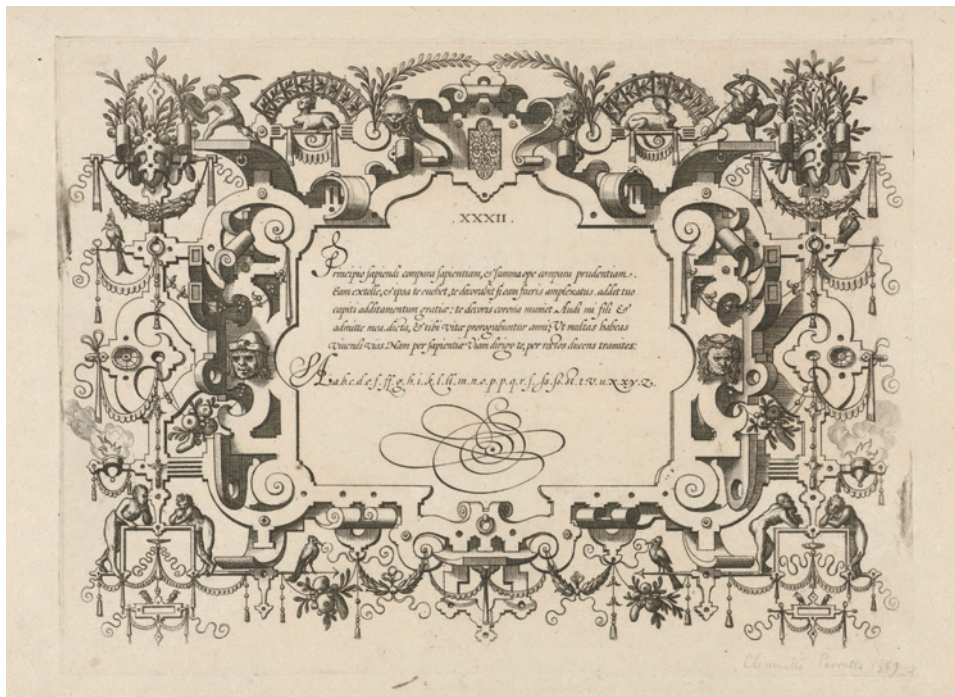 XXXII.
Principio sapiendi compara sapientiam, & summa ope compara prudentiam.
Eam extolle, & ipsa te euehet, te decorabit si eam fueris amplexatus. addet tuo
capiti additamentum gratiæ: te decoris corona muniet. Audi mi fili &
admitte mea dicta, & tibi vitæ prorogabuntur anni; Vt multas habeas
viuendi vias. Nam per sapientiæ viam dirigo te, per rectos ducens tramites:
a.b.c.d.e.f.ff.g.h.i.k.l.ll.m.n.o.p.p.q.r.s.ss.st.t.v.u.x.x.y.z.
Clemente Perrette 1569